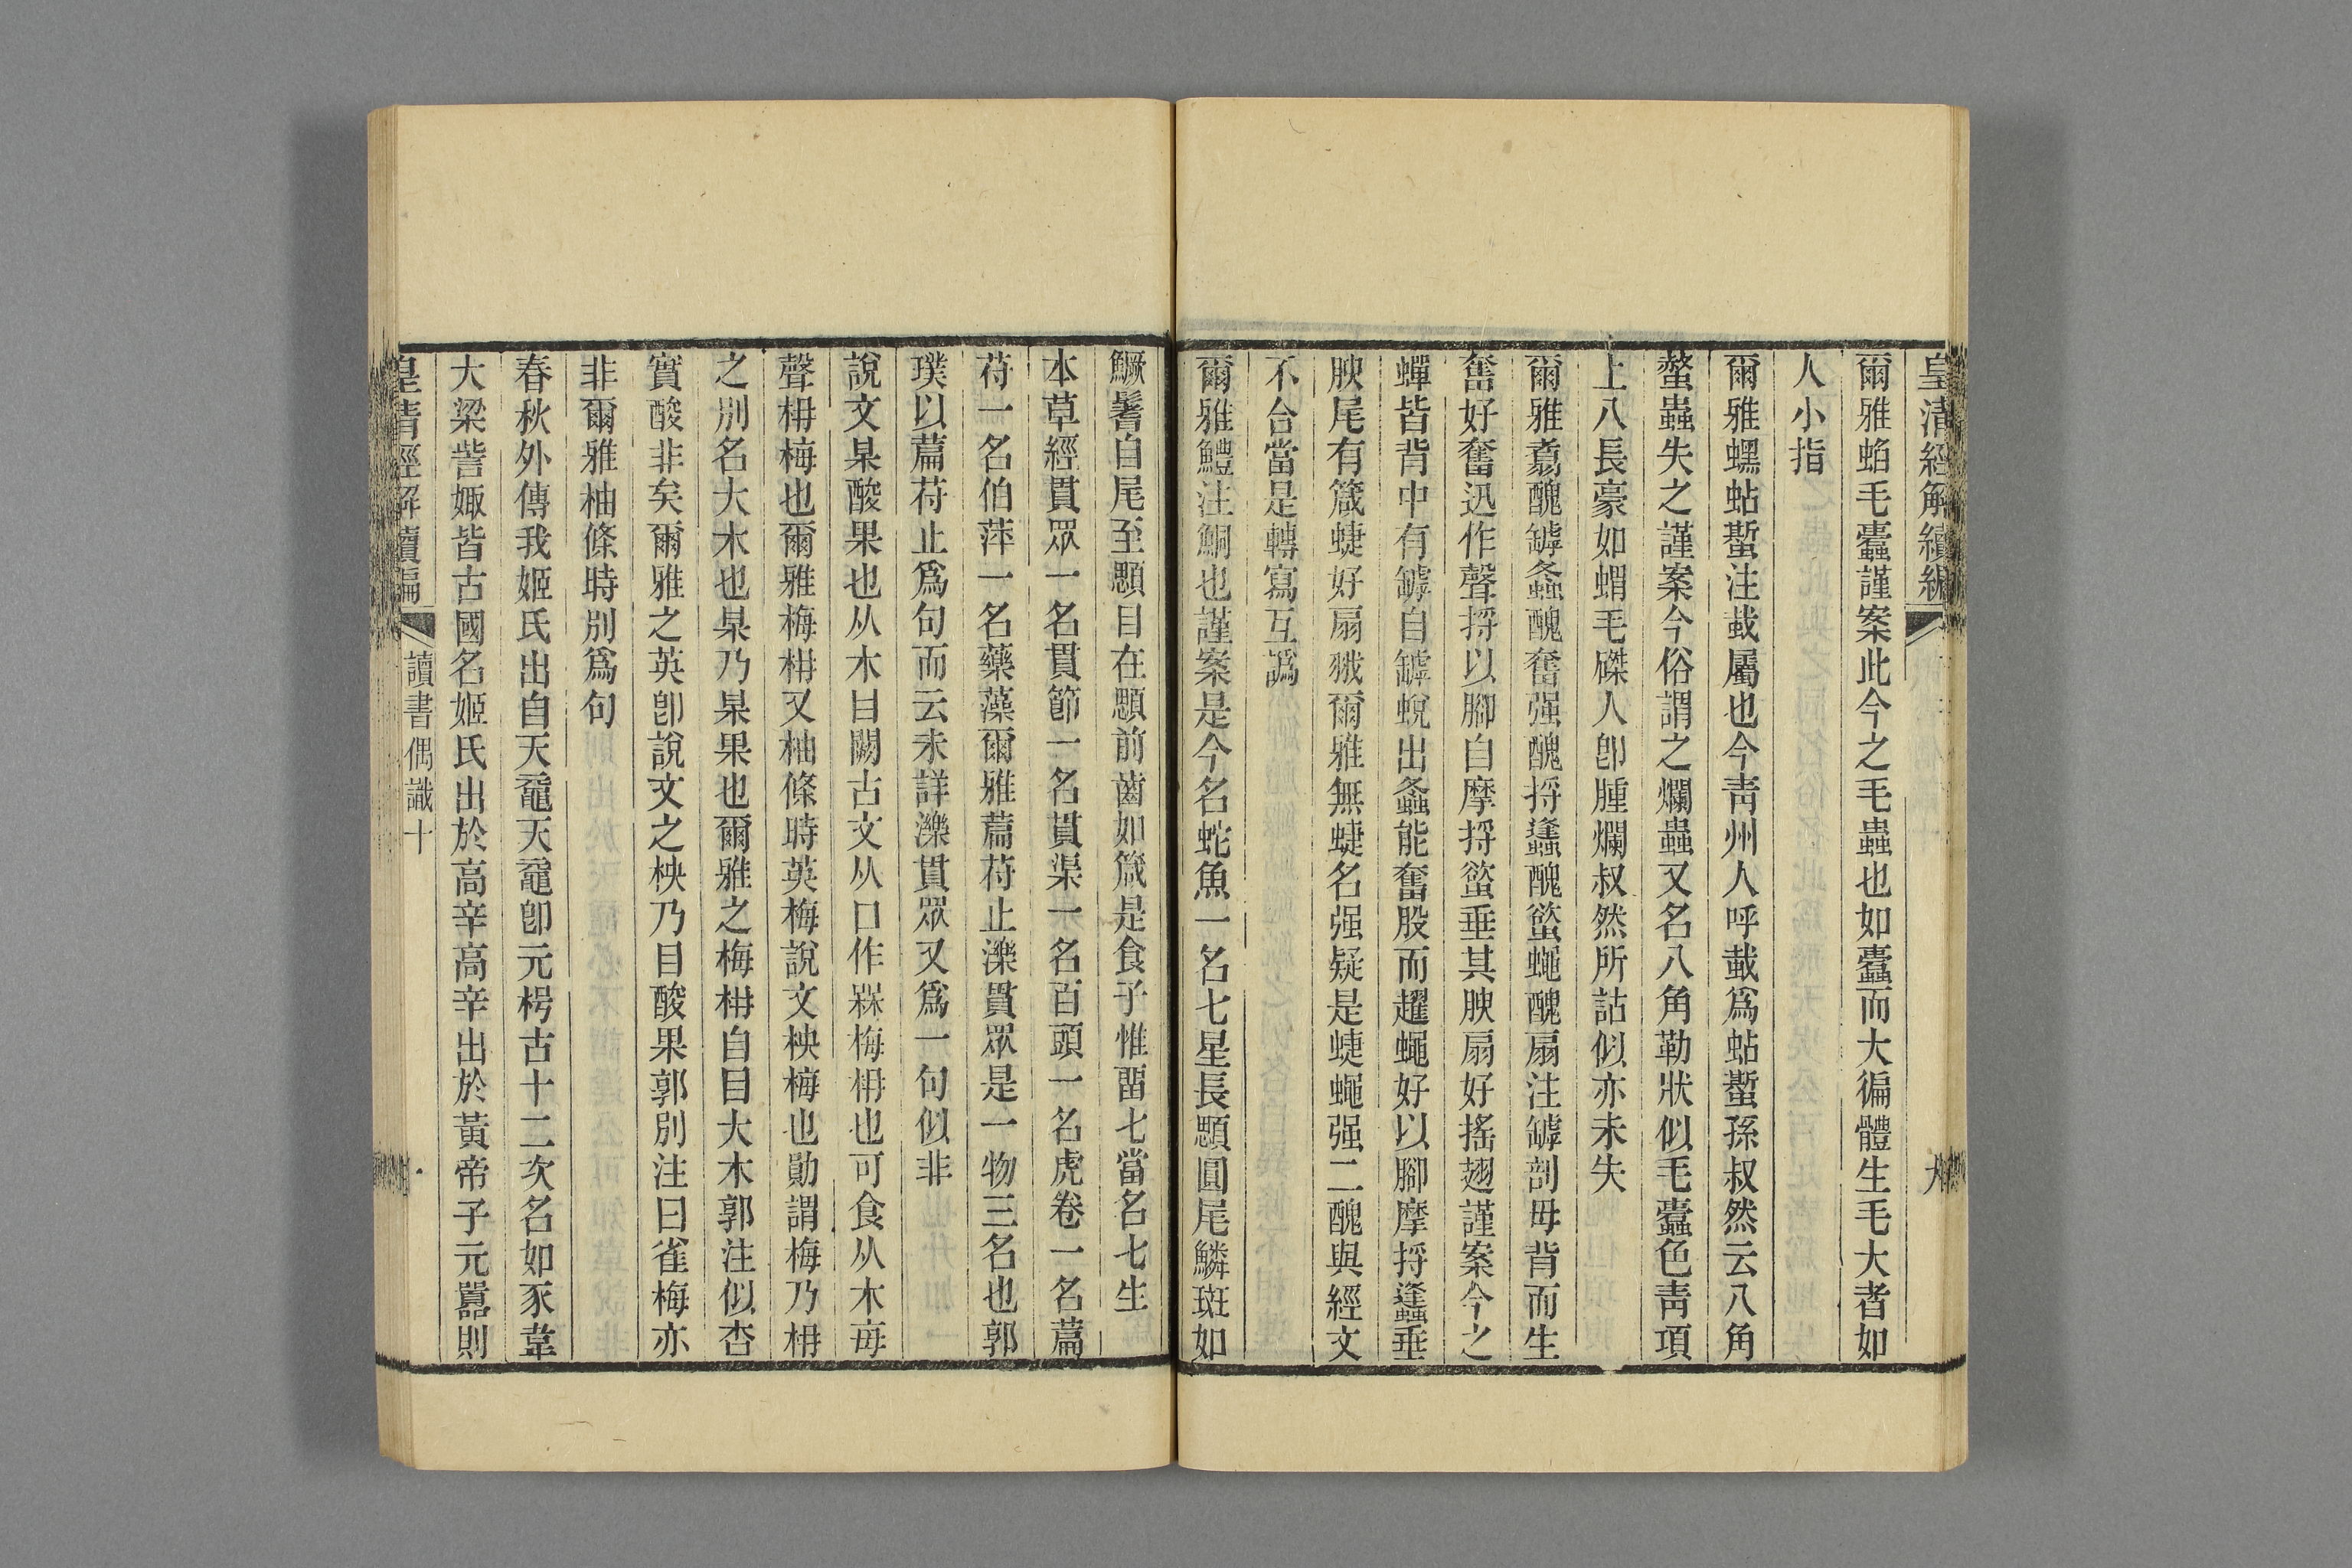 皇清經解續編
九
爾雅蛅毛蠹謹案此今之毛蟲也如蠹而大徧體生毛大者如
人小指
爾雅蟔蛅蟴注蛓屬也今靑州人呼蛓爲蛅蟴孫叔然云八角
螫蟲失之謹案今俗謂之爛蟲又名八角勒狀似毛蠹色靑項
上八長豪如蝟毛磔人卽腫爛叔然所詁似亦未失
爾雅翥醜罅螽醜奮强醜捋蠭醜螸蠅醜扇注罅剖毋背而生
奮好奮迅作聲捋以腳自摩捋螸垂其腴扇好搖翅謹案今之
蟬皆背中有罅自罅蛻出螽能奮股而趯蠅好以腳摩捋蠭垂
腴尾有箴蜨好扇䎃爾雅無蜨名强疑是蜨蠅强二醜與經文
不合當是轉寫互譌
爾雅鱧注鮦也謹案是今名蛇魚一名七星長顋圓尾鱗斑如
鱖鬐自尾至顋目在顋前齒如箴是食子惟畱七當名七生
本草經貫眾一名貫節一名貫渠一名百頭一名虎卷一名萹
苻一名伯萍一名藥藻爾雅萹苻止濼貫眾是一物三名也郭
璞以萹苻止爲句而云未詳濼貫眾又爲一句似非
說文某酸果也从木甘闕古文从口作槑梅枏也可食从木每
聲枏梅也爾雅梅枏又柚條時英梅說文柍梅也勛謂梅乃枏
之別名大木也某乃某果也爾雅之梅枏自目大木郭注似杏
實酸非矣爾雅之英卽說文之柍乃目酸果郭別注曰雀梅亦
非爾雅柚條時別爲句
春秋外傳我姬氏出自天黿天黿卽元枵古十二次名如豕韋
大梁訾娵皆古國名姬氏出於高辛高辛出於黃帝子元囂則
皇清經解續編
讀書偶識十